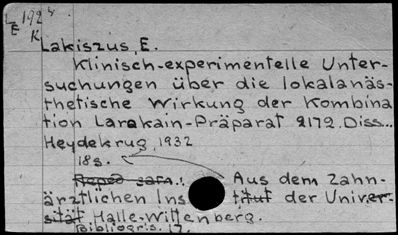 L 192
E K
Lakiszus, E.
Klinisch-experimentelle Unter-
suchungen über die lokalanäs-
thetische Wirkung der Kombina
tion Larakain-Präparat 2172. Diss..
Heydekrug, 1932
18s.
Aus dem Zahn-
ärztlichen Institut der Univer-
sität Halle-Wittenberg.
Bibliogr. s. 17.